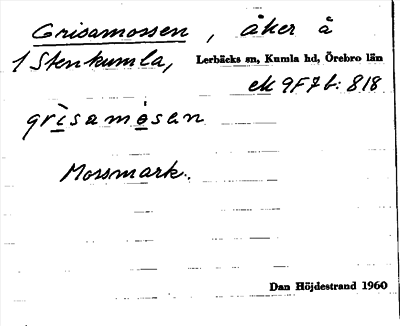 Grisamossen, åker å
1 Stenkumla, Lerbäcks sn, Kumla hd, Örebro län
ek 9F7b: 818
grìsamósen
Mossmark.
Dan Höjdestrand 1960